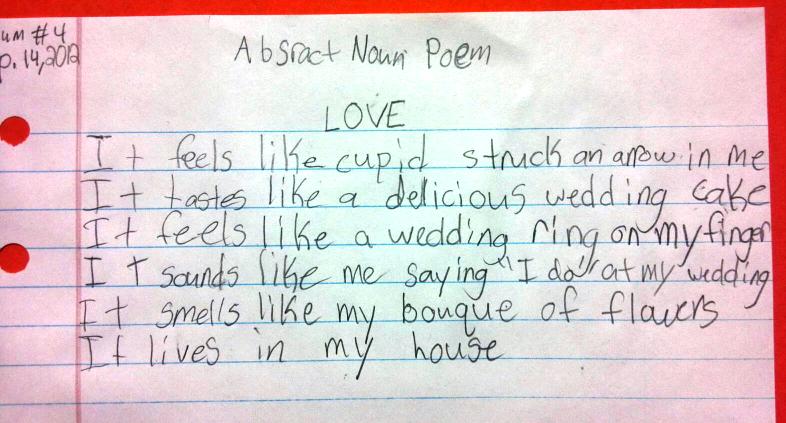 um #4
p. 14, 2012
Absract Noun Poem
LOVE
It feels like cupid struck an arrow in me
It tastes like a delicious wedding cake
It feels like a wedding ring on my finger
It sounds like me saying "I do" at my wedding
It smells like my bouque of flowers
It lives in my house